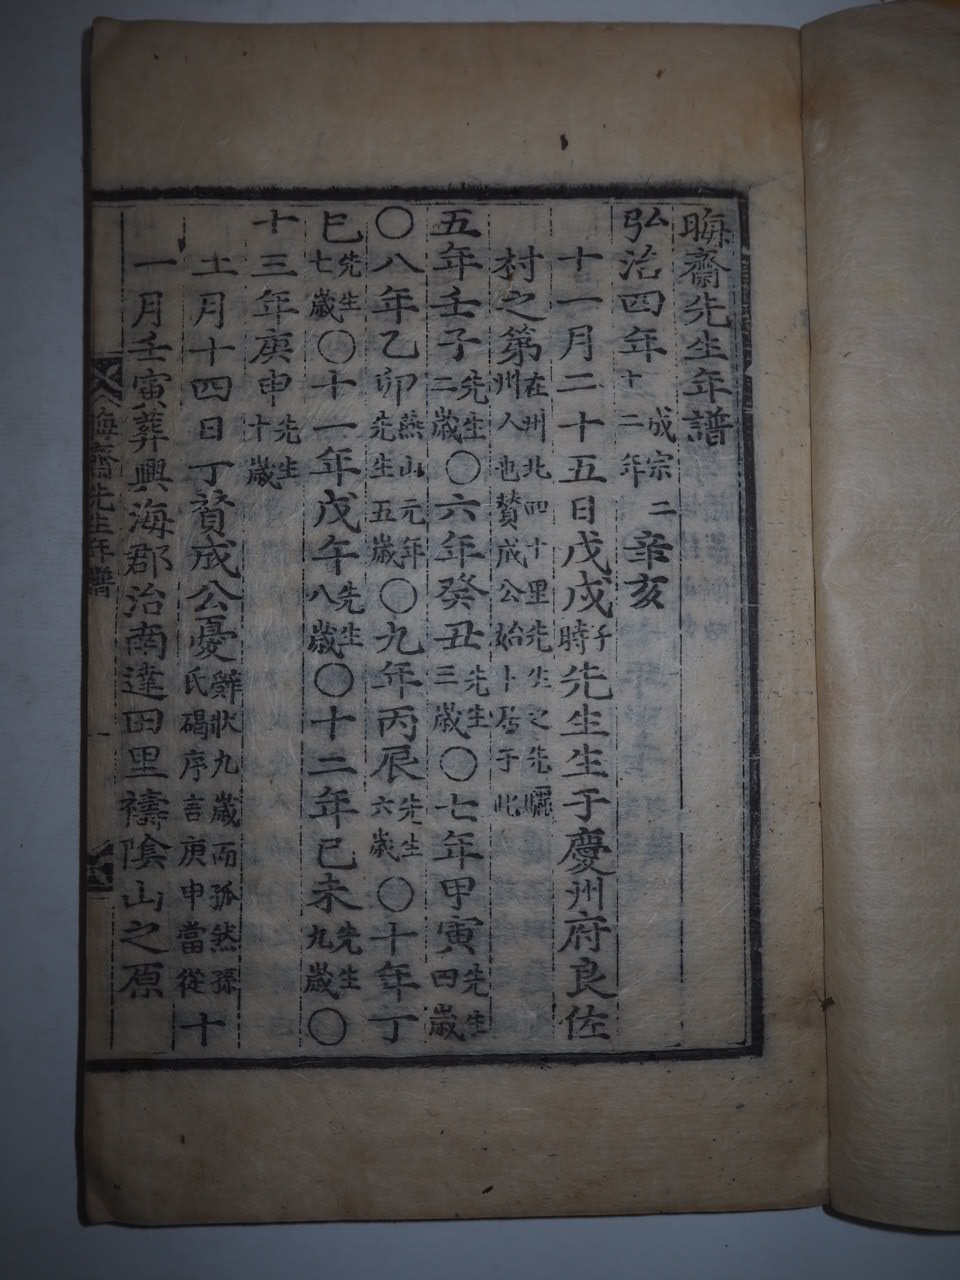 晦齋先生年譜
弘治四年成宗二十二年辛亥
十一月二十五日戊戌子時先生生于慶州府良佐
村之第在州北四十里先生之先驪州人也贊成公始卜居于此
五年壬子先生二歲〇六年癸丑先生三歲〇七年甲寅先生四歲
〇八年乙卯燕山元年先生五歲〇九年丙辰先生六歲〇十年丁
巳先生七歲〇十一年戊午先生八歲〇十二年己未先生九歲〇
十三年庚申先生十歲
十月十四日丁贊成公憂辭狀九歲而孤然孫氏碣序言庚申當從十
一月壬寅葬興海郡治南達田里禱陰山之原
晦齋先生年譜
一